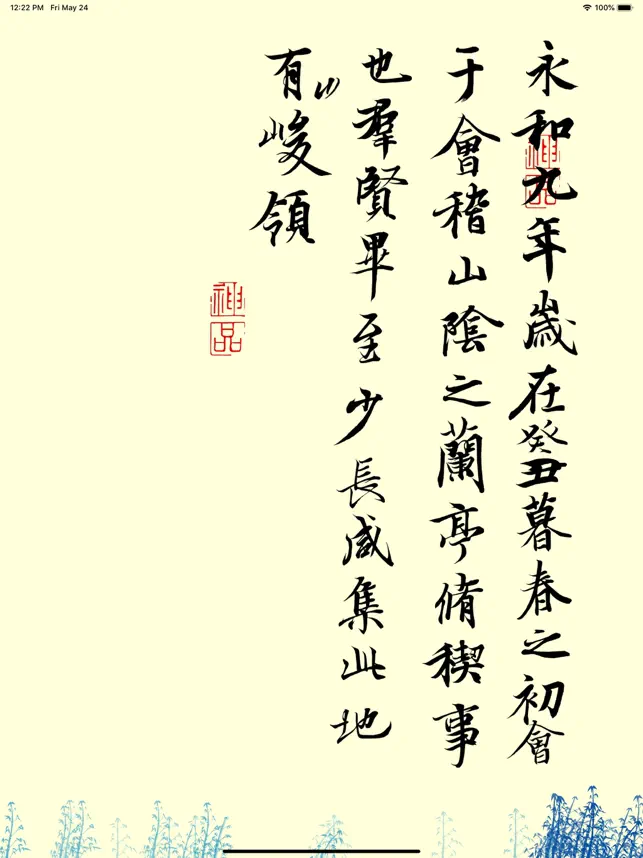 12:22 PM Fri May 24
100%
永和九年歲在癸丑暮春之初會
于會稽山陰之蘭亭脩稧事
也羣賢畢至少長咸集此地
有山峻領
神品
神品